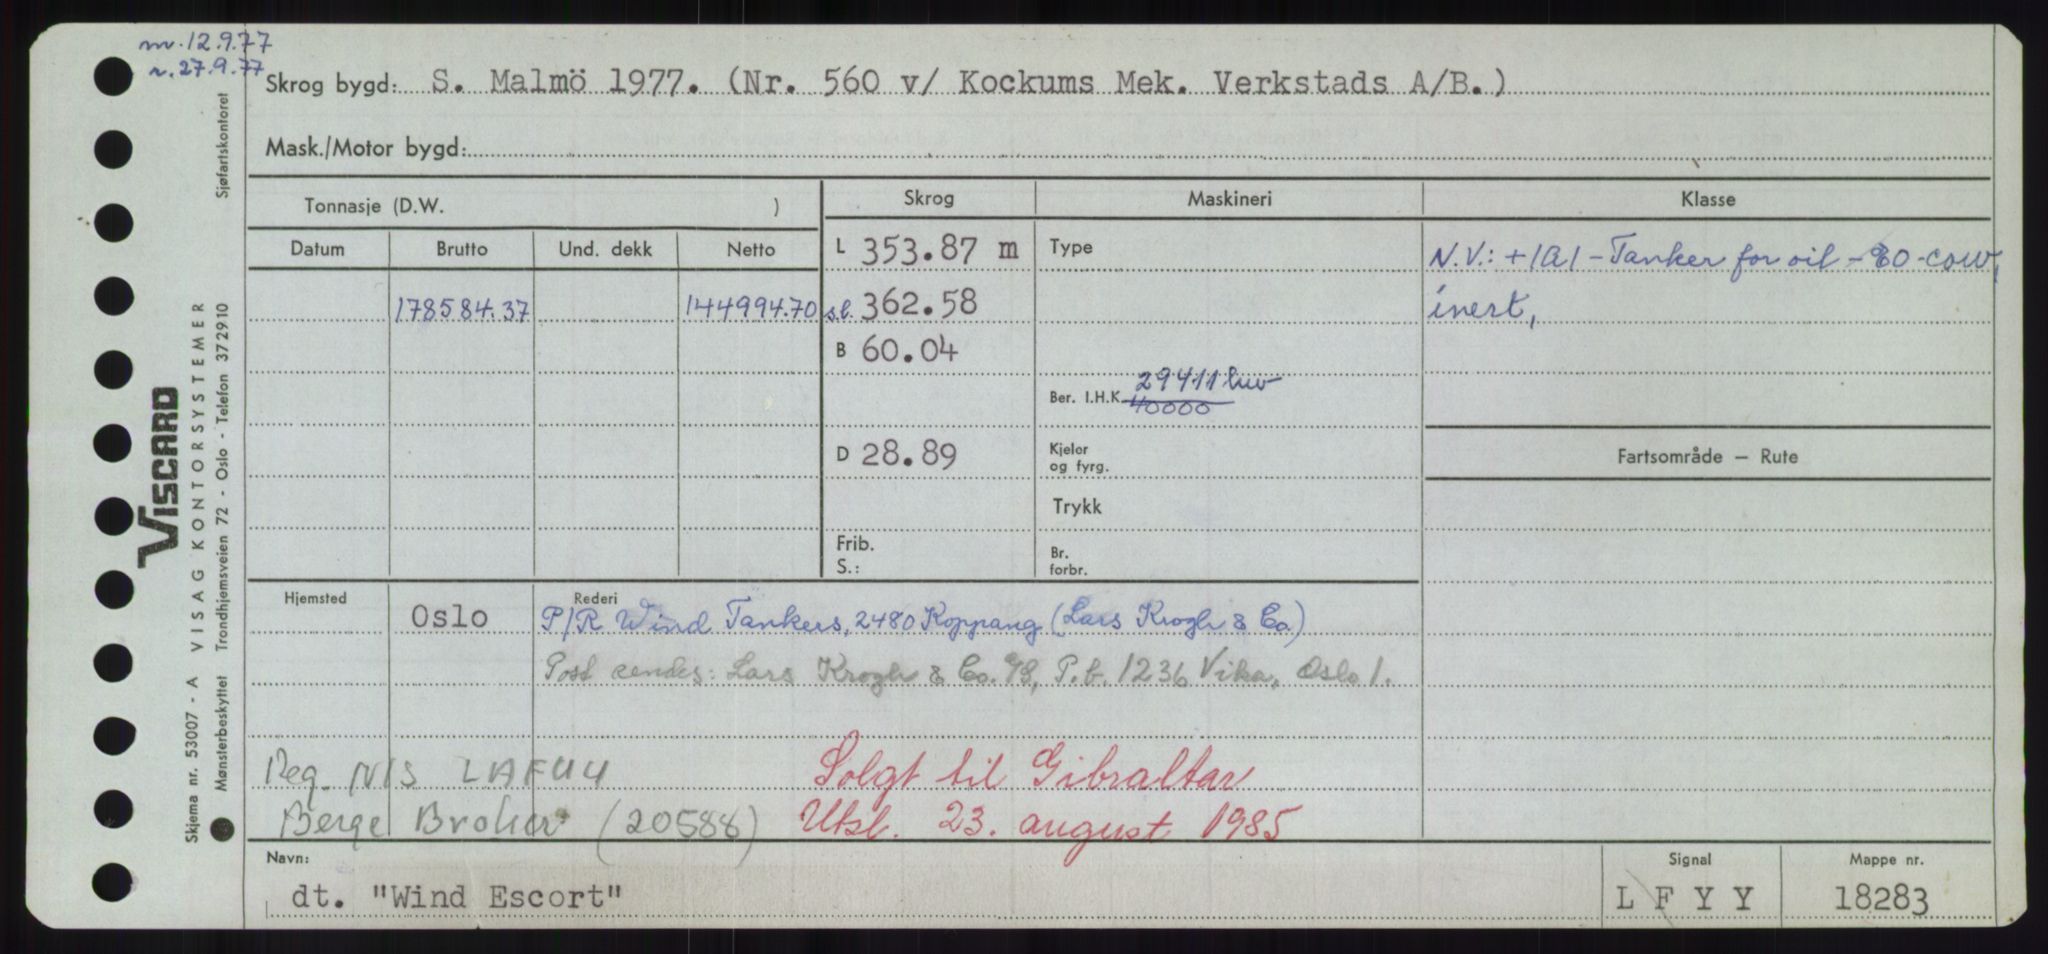 nv. 12.9.77
r. 27.9.77
Skrog bygd: S. Malmö 1977. (Nr. 560 v/ Kockums Mek. Verkstads A/B.)
Mask./Motor bygd:
Tonnasje (D.W. )
Skrog
Maskineri
Klasse
Datum
Brutto
Und. dekk
Netto
L 353.87 m
Type
N.V.: +1A1 - Tanker for oil - E0 - cow,
178584.37
144994.70
s.l. 362.58
inert,
B 60.04
29411 kw
Ber. I.H.K. 40000
D 28.89
Kjeler
og fyrg.
Fartsområde — Rute
Trykk
Frib.
S.:
Br.
forbr.
Hjemsted
Oslo
Rederi
P/R Wind Tankers, 2480 Koppang (Lars Krogh & Co.)
Post sendes: Lars Krogh & Co. A/S, P.b. 1236 Vika, Oslo 1.
Reg. NIS LAFU4
Solgt til Gibraltar
Berge Broker (20588)
Utsl. 23. august 1985
Navn:
dt. "Wind Escort"
Signal
L F Y Y
Mappe nr.
18283
Sjøfartskontoret
VISCARD
A VISAG KONTORSYSTEMER
Trondhjemsveien 72 - Oslo - Telefon 372910
Skjema nr. 53007 - A
Mønsterbeskyttet